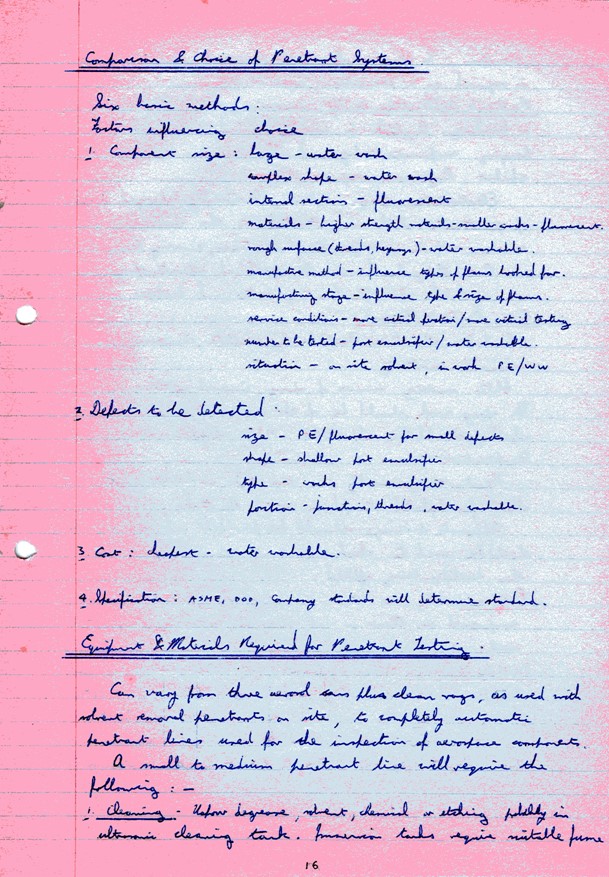 Comparison & Choice of Penetrant Systems.
Six basic methods:
Factors influencing choice
1. Component size: large - water wash
complex shape - water wash
internal sections - fluorescent
materials - higher strength materials - smaller cracks - fluorescent.
rough surface (threads, keyways) - water washable.
manufacture method - influence types of flaws looked for.
manufacturing stage - influence type & size of flaws.
service conditions - more critical function/more critical testing
number to be tested - post emulsifier/water washable.
situation - on site solvent, in work PE/WW
2. Defects to be detected.
size - PE/fluorescent for small defects
shape - shallow post emulsifier
type - cracks post emulsifier
position - junctions, threads, water washable.
3 Cost: cheapest - water washable.
4. Specification: ASME, DOD, Company standards will determine standard.
Equipment & Materials Required for Penetrant Testing.
Can vary from three aerosol cans plus clean rags, as used with
solvent removal penetrants on site, to completely automatic
penetrant lines used for the inspection of aerospace components.
A small to medium penetrant line will require the
following: -
1. Cleaning - Vapour degrease, solvent, chemical or etching in
ultrasonic cleaning tank. Immersion tanks require suitable fume
16